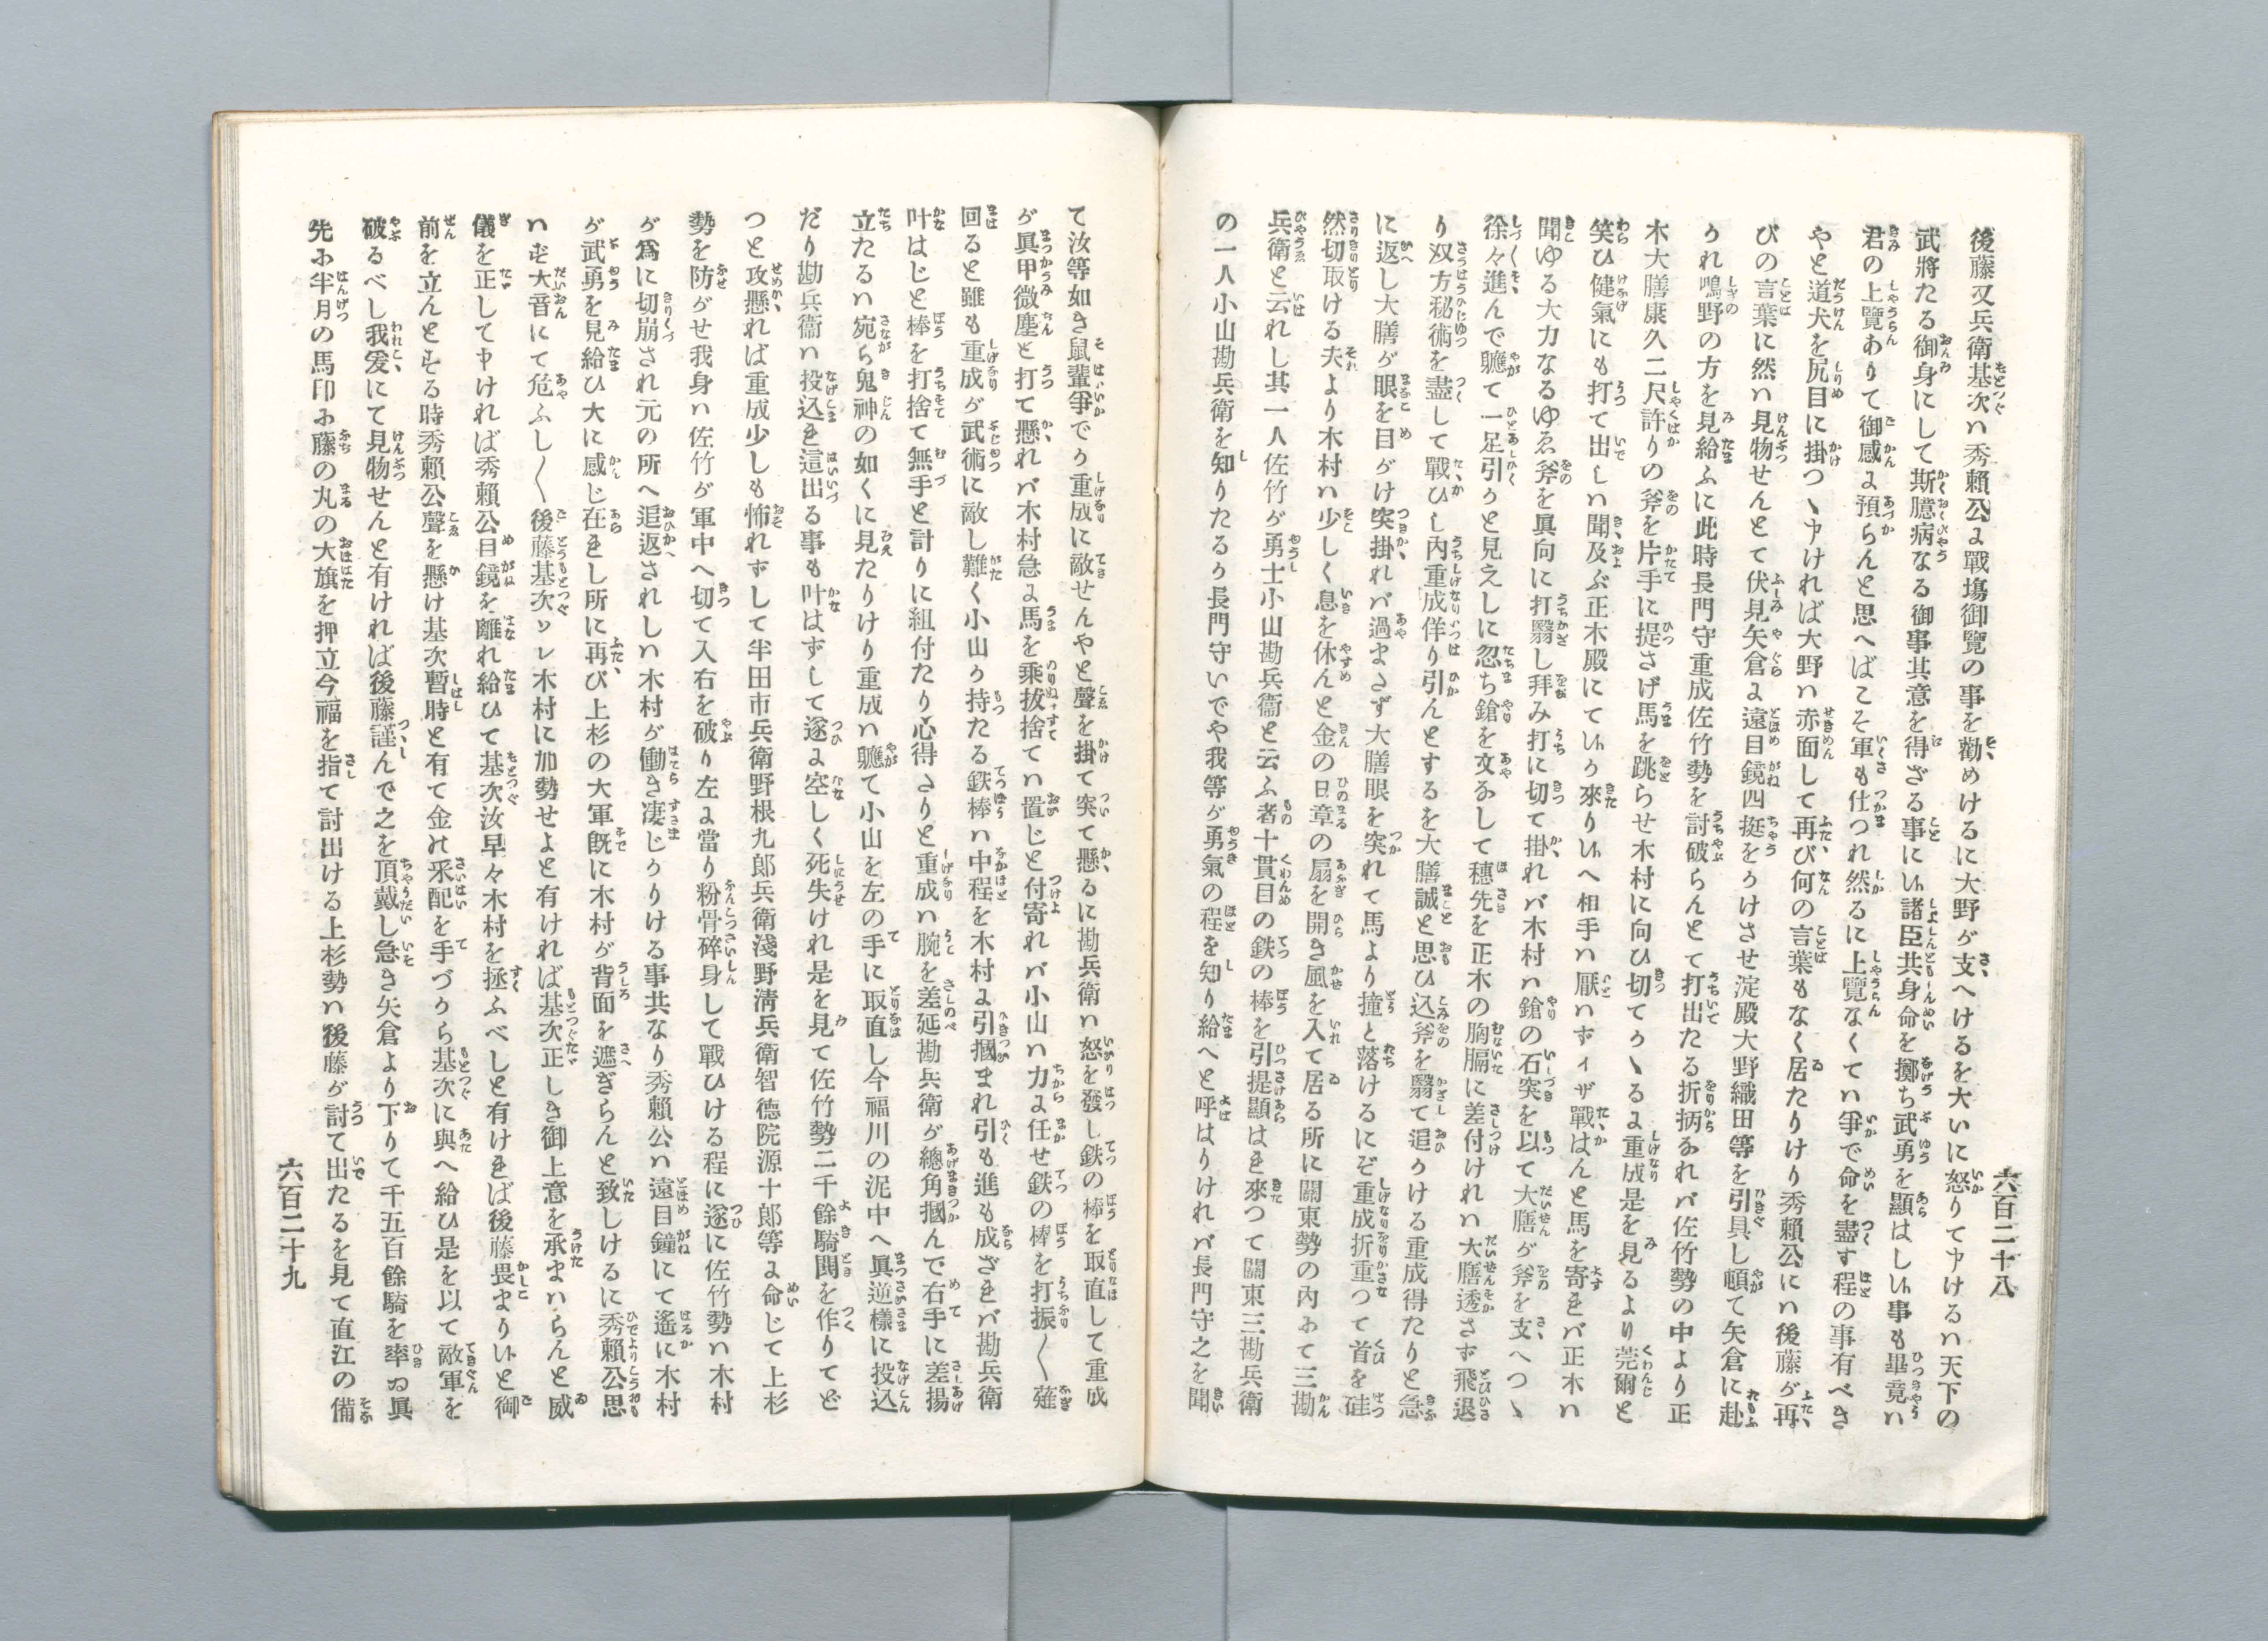 六百二十八
後藤又兵衛基次ハ秀賴公ニ戰塲御覽の事を勸めけるに大野が支へけるを大いに怒りて申けるハ天下の
武將たる御身にして斯臆病なる御事其意を得ざる事にい諸臣共身命を擲ち武勇を顯はしい事も畢竟ハ
君の上覽ありて御感ニ預らんと思へばこそ軍も仕つれ然るに上覽なくてハ爭で命を盡す程の事有べき
やと道犬を尻目に掛つゝ申ければ大野ハ赤面して再び何の言葉もなく居たりけり秀賴公にハ後藤が再
びの言葉に然ハ見物せんとて伏見矢倉ニ遠目鏡四挺をかけさせ淀殿大野織田等を引具し頓て矢倉に赴
かれ鴫野の方を見給ふに此時長門守重成佐竹勢を討破らんとて打出たる折柄なれバ佐竹勢の中より正
木大膳康久二尺許りの斧を片手に提さげ馬を跳らせ木村に向ひ切てかゝるニ重成是を見るより莞爾と
笑ひ健氣にも打て出しハ聞及ぶ正木殿にていか來りいへ相手ハ厭ハずイザ戰はんと馬を寄きバ正木ハ
聞ゆる大力なるゆゑ斧を眞向に打翳し拜み打に切て掛れバ木村ハ鎗の石突を以て大膳が斧を支へつゝ
徐々進んで軈て一足引かと見えしに忽ち鎗を文なして穗先を正木の胸膈に差付けれハ大膳透さず飛退
り双方秘術を盡して戰ひし内重成佯り引んとするを大膳誠と思ひ込斧を翳て追かける重成得たりと急
に返し大膳が眼を目がけ突掛れバ過またず大膳眼を突れて馬より撞と落けるにぞ重成折重つて首を硅
然切取ける夫より木村ハ少しく息を休んと金の日章の扇を開き風を入て居る所に關東勢の内にて三勘
兵衛と云れし其一人佐竹が勇士小山勘兵衞と云ふ者十貫目の鉄の棒を引提顯はき來つて關東三勘兵衛
の一人小山勘兵衛を知りたるか長門守いでや我等が勇氣の程を知り給へと呼はりけれバ長門守之を聞
て汝等如き鼠輩爭でか重成に敵せんやと聲を掛て突て懸るに勘兵衛ハ怒を發し鉄の棒を取直して重成
が眞甲微塵と打て懸れバ木村急ニ馬を乘拔捨てハ置じと付寄れバ小山ハ力ニ任せ鉄の棒を打振〱薙
回ると雖も重成が武術に敵し難く小山か持たる鉄棒ハ中程を木村ニ引摑まれ引も進も成ざきバ勘兵衛
叶はじと棒を打捨て無手と計りに組付たり心得さりと重成ハ腕を差延勘兵衛が總角摑んで右手に差揚
立たるハ宛ら鬼神の如くに見たりけり重成ハ軈て小山を左の手に取直し今福川の泥中へ眞逆樣に投込
だり勘兵衞ハ投込き這出る事も叶はずして遂ニ空しく死失けれ是を見て佐竹勢二千餘騎鬨を作りてど
つと攻懸れば重成少しも怖れずして半田市兵衛野根九郎兵衛淺野淸兵衛智德院源十郎等ニ命じて上杉
勢を防がせ我身ハ佐竹が軍中へ切て入右を破り左ニ當り粉骨碎身して戰ひける程に遂に佐竹勢ハ木村
が爲に切崩され元の所へ追返されしハ木村が働き凄じかりける事共なり秀賴公ハ遠目鐘にて遙に木村
が武勇を見給ひ大に感じ在きし所に再び上杉の大軍既に木村が背面を遮ぎらんと致しけるに秀賴公思
ハず大音にて危ふし〱後藤基次ソレ木村に加勢せよと有ければ基次正しき御上意を承まハらんと威
儀を正して申ければ秀賴公目鏡を離れ給ひて基次汝早々木村を拯ふべしと有けきば後藤畏まりいと御
前を立んとせる時秀賴公聲を懸け基次暫時と有て金の采配を手づから基次に與へ給ひ是を以て敵軍を
破るべし我爰にて見物せんと有ければ後藤謹んで之を頂戴し急き矢倉より下りて千五百餘騎を率ゐ眞
先に半月の馬印に藤の丸の大旗を押立今福を指て討出ける上杉勢ハ後藤が討て出たるを見て直江の備
六百二十九